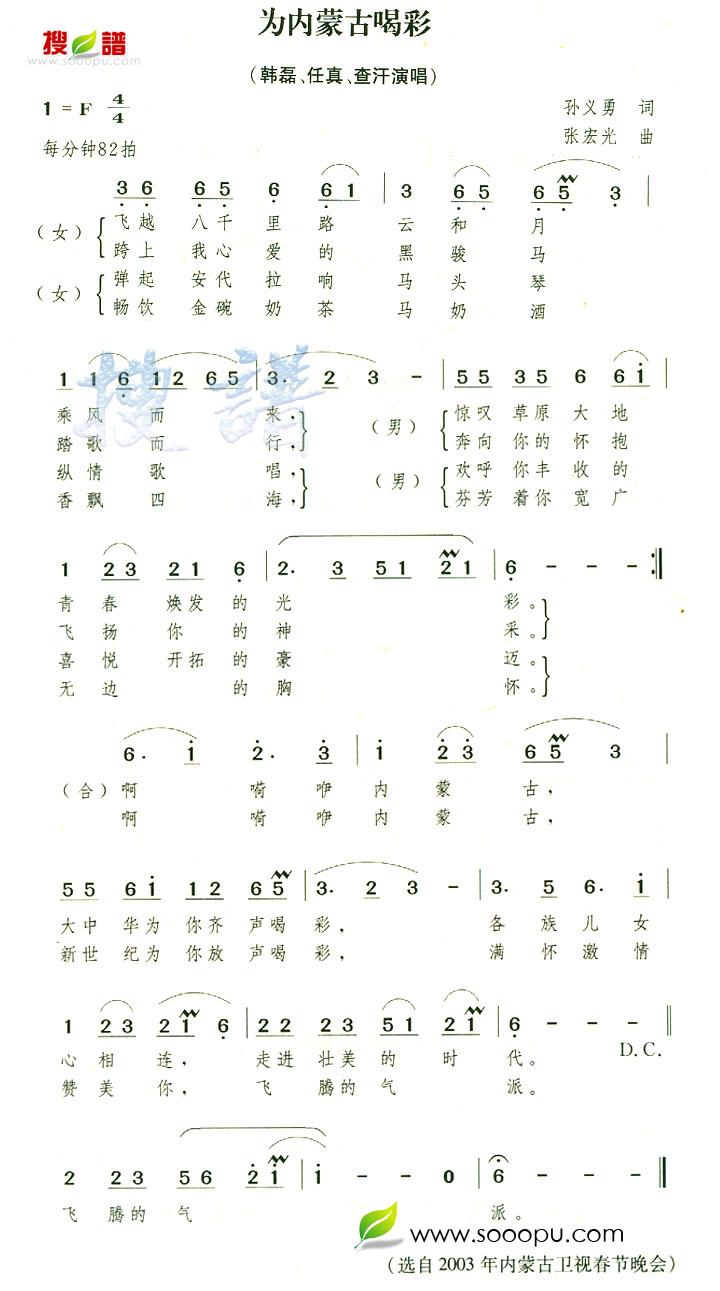 为内蒙古喝彩
搜 譜
www.sooopu.com
(韩磊、任真、查汗演唱)
1 = F 4/4
孙义勇 词
每分钟82拍
张宏光 曲
3 6 6 5 6 6 1 | 3 6 5 6 5 3 |
(女) 飞越 八千 里 路 云 和 月
跨上 我心 爱 的 黑 骏 马
(女) 弹起 安代 拉 响 马 头 琴
畅饮 金碗 奶 茶 马 奶 酒
1 1 6 1 2 6 5 | 3. 2 3 - | 5 5 3 5 6 6 1 |
乘 风 而 来, (男) 惊叹 草原 大 地
踏 歌 而 行, 奔向 你的 怀 抱
纵 情 歌 唱, (男) 欢呼 你丰 收 的
香 飘 四 海, 芬芳 着你 宽 广
搜 譜
1 2 3 2 1 6 | 2. 3 5 1 2 1 | 6 - - - :‖
青 春 焕发 的 光 彩。
飞 扬 你 的 神 采。
喜 悦 开拓 的 豪 迈。
无 边 的 胸 怀。
6. 1 2. 3 | 1 2 3 6 5 3 |
(合) 啊 嗬 咿 内 蒙 古,
啊 嗬 咿 内 蒙 古,
5 5 6 1 1 2 6 5 | 3. 2 3 - | 3. 5 6. 1 |
大中 华为 你齐 声喝 彩, 各 族 儿 女
新世 纪为 你放 声喝 彩, 满 怀 激 情
1 2 3 2 1 6 | 2 2 2 3 5 1 2 1 | 6 - - - ‖
心 相 连, 走进 壮美 的 时 代。 D.C.
赞 美 你, 飞 腾的 气 派。
2 2 3 5 6 2 1 | 1 - - 0 | 6 - - ‖
飞 腾的 气 派。
www.sooopu.com
(选自 2003 年内蒙古卫视春节晚会)